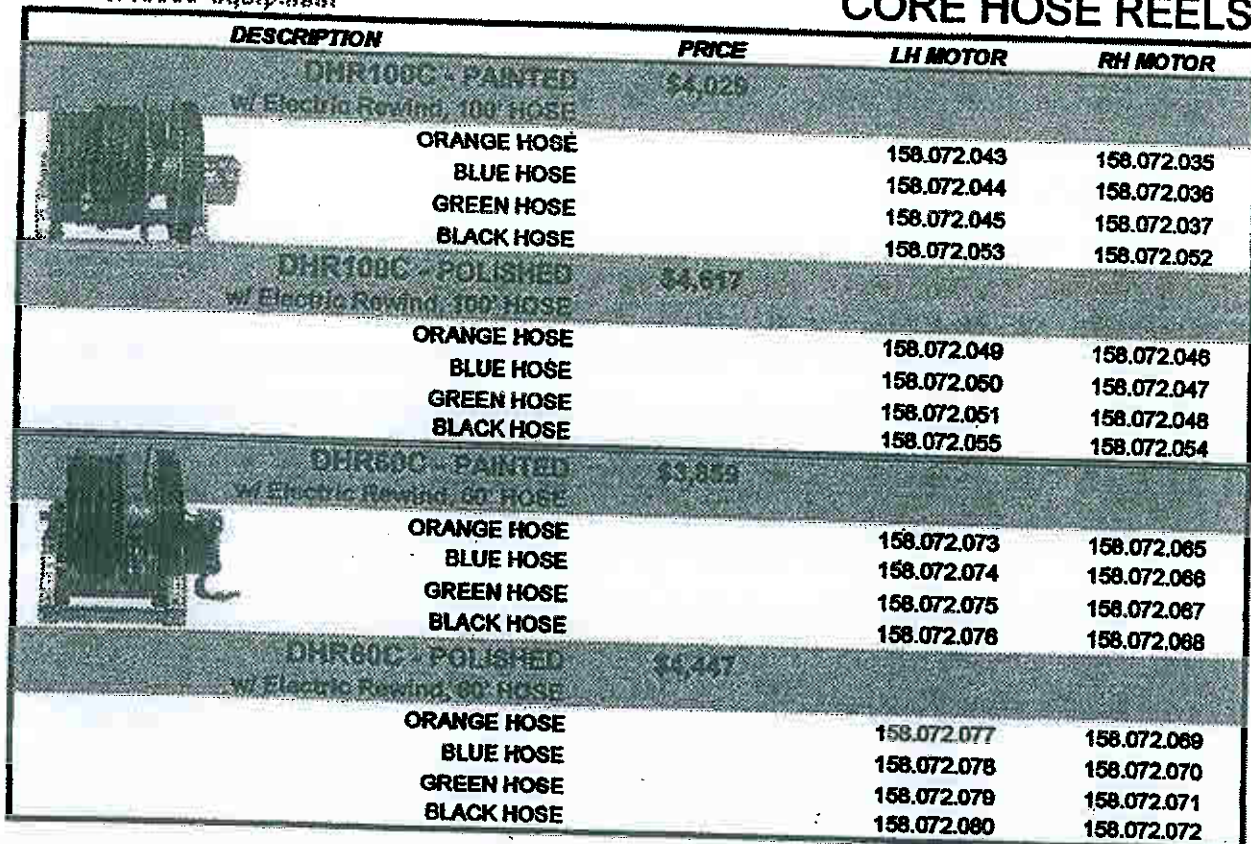 CORE HOSE REELS
DESCRIPTION PRICE LH MOTOR RH MOTOR
DHR100C - PAINTED $4,029
w/ Electric Rewind, 100' HOSE
ORANGE HOSE 158.072.043 158.072.035
BLUE HOSE 158.072.044 158.072.036
GREEN HOSE 158.072.045 158.072.037
BLACK HOSE 158.072.053 158.072.052
DHR100C - POLISHED $4,617
w/ Electric Rewind, 100' HOSE
ORANGE HOSE 158.072.049 158.072.046
BLUE HOSE 158.072.050 158.072.047
GREEN HOSE 158.072.051 158.072.048
BLACK HOSE 158.072.055 158.072.054
DHR60C - PAINTED $3,859
w/ Electric Rewind, 60' HOSE
ORANGE HOSE 158.072.073 158.072.065
BLUE HOSE 158.072.074 158.072.066
GREEN HOSE 158.072.075 158.072.067
BLACK HOSE 158.072.076 158.072.068
DHR60C - POLISHED $4,447
w/ Electric Rewind, 60' HOSE
ORANGE HOSE 158.072.077 158.072.069
BLUE HOSE 158.072.078 158.072.070
GREEN HOSE 158.072.079 158.072.071
BLACK HOSE 158.072.080 158.072.072